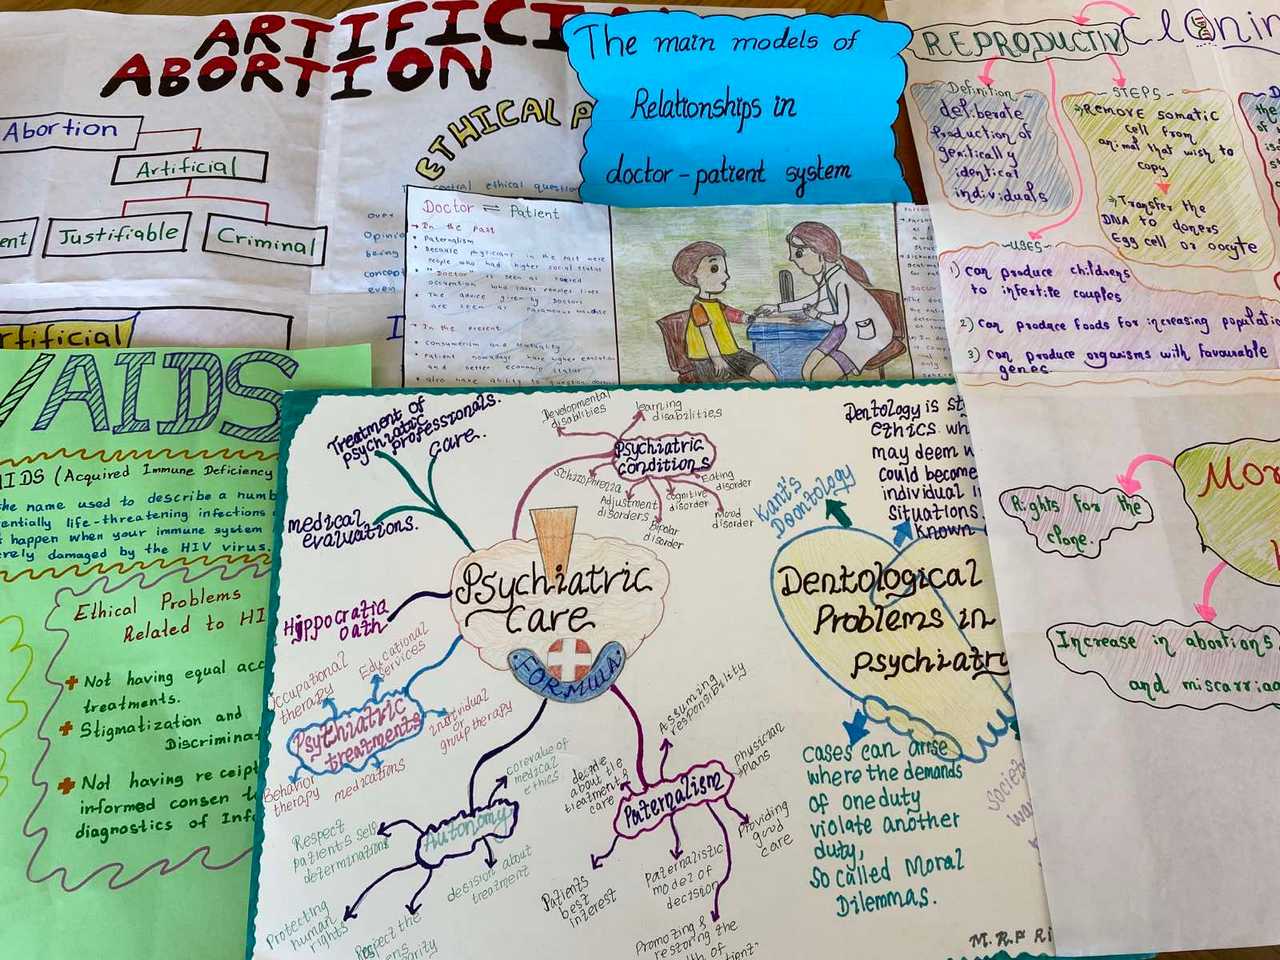 ARTIFICI
ABORTION
Abortion
Artificial
Justifiable
Criminal
rtificial
ETHICAL P
central ethical question
The main models of
Relationships in
doctor-patient system
Doctor ⇌ Patient
In the Past
Paternalism
Because physicians in the past were
People who had higher social status
"Doctor" is seen as sacred
occupation who saves render lives
The advice given by doctors
are seen as Paramount
In the present
consumerism and mutuality
Patient nowadays have higher education
and better economic status
also have ability to question
REPRODUCTIV Clonin
Definition
deliberate
production of
genitically
identical
individuals
STEPS
Remove somatic
cell from
animal that wish to
copy
Transfer the
DNA to doners
Egg cell or oocyte
USES
1) can produce childrens
to infertile couples
2) can produce foods for increasing populati
3) can produce organisms with favourable
genes
Rights for the
clone.
Mor
Increase in abortions
and miscarria
/AIDS
IDS (Acquired Immune Deficiency
he name used to describe a numb
entially life-threatening infections
t happen when your immune system
erely damaged by the HIV virus.
Ethical Problems
Related to HI
Not having equal acc
treatments.
Stigmatization and
Discriminat
Not having receipt
informed consen t
diagnostics of Inf
Treatment of
psychiatric
professionals.
care.
medical
evaluations.
Hippocratia
oath
Psychiatric
care
FORMULA
Psychiatric
conditions
Developmental
disabilities
learning
disabilities
Schizophrenia
Adjustment
disorders
Bipolar
disorder
cognitive
disorder
Eating
disorder
Mood
disorder
Psychiatric
treatments
Occupational
therapy
Educational
services
individual
or
group therapy
Behavior
therapy
medications
Autonomy
corevalue of
medical
ethics
Respect
patients self
determinations
Protecting
human
rights
Respect the
decision about
treatment
Paternalism
decide
about the
treatment &
care
Assuming
responsibility
physician
plans
Providing
good
care
Patients
best
interest
Paternalistic
model of
decision
Promoting &
restoring the
Kant's
Deontology
Dentology is st
ethics. wh
may deem w
could become
individual i
situations
known
Dentological
Problems in
psychiatry
cases can arise
where the demands
of one duty
violate another
duty,
So called Moral
Dilemmas.
M.R.F Ri